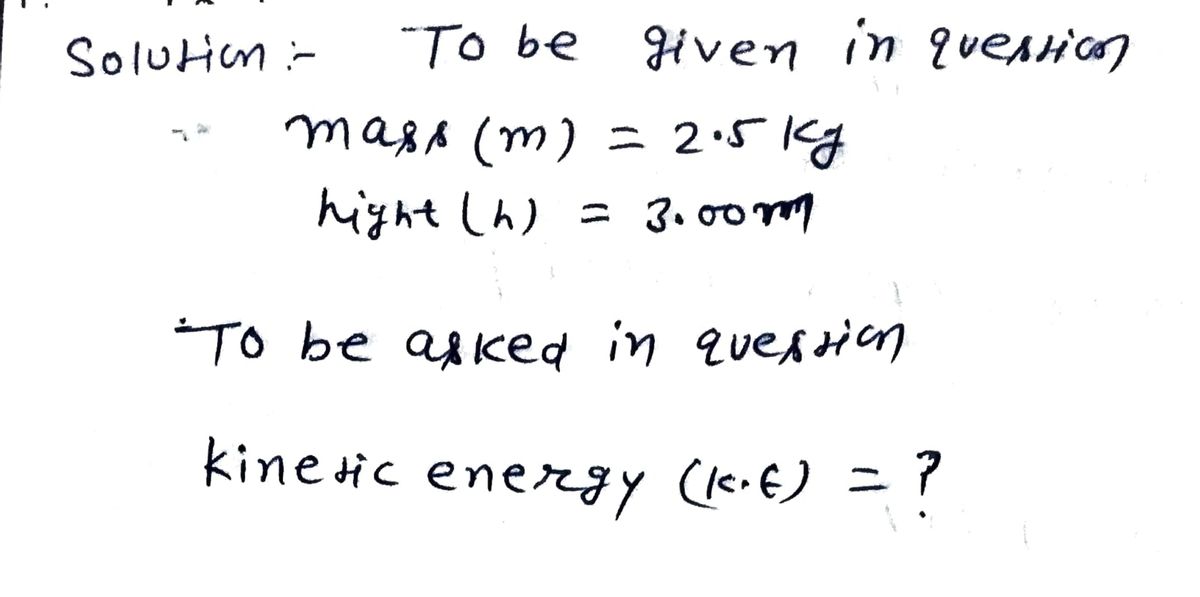 Solution :- To be given in question
mass (m) = 2.5 kg
hight (h) = 3.00m
To be asked in question
kinetic energy (k.E) = ?